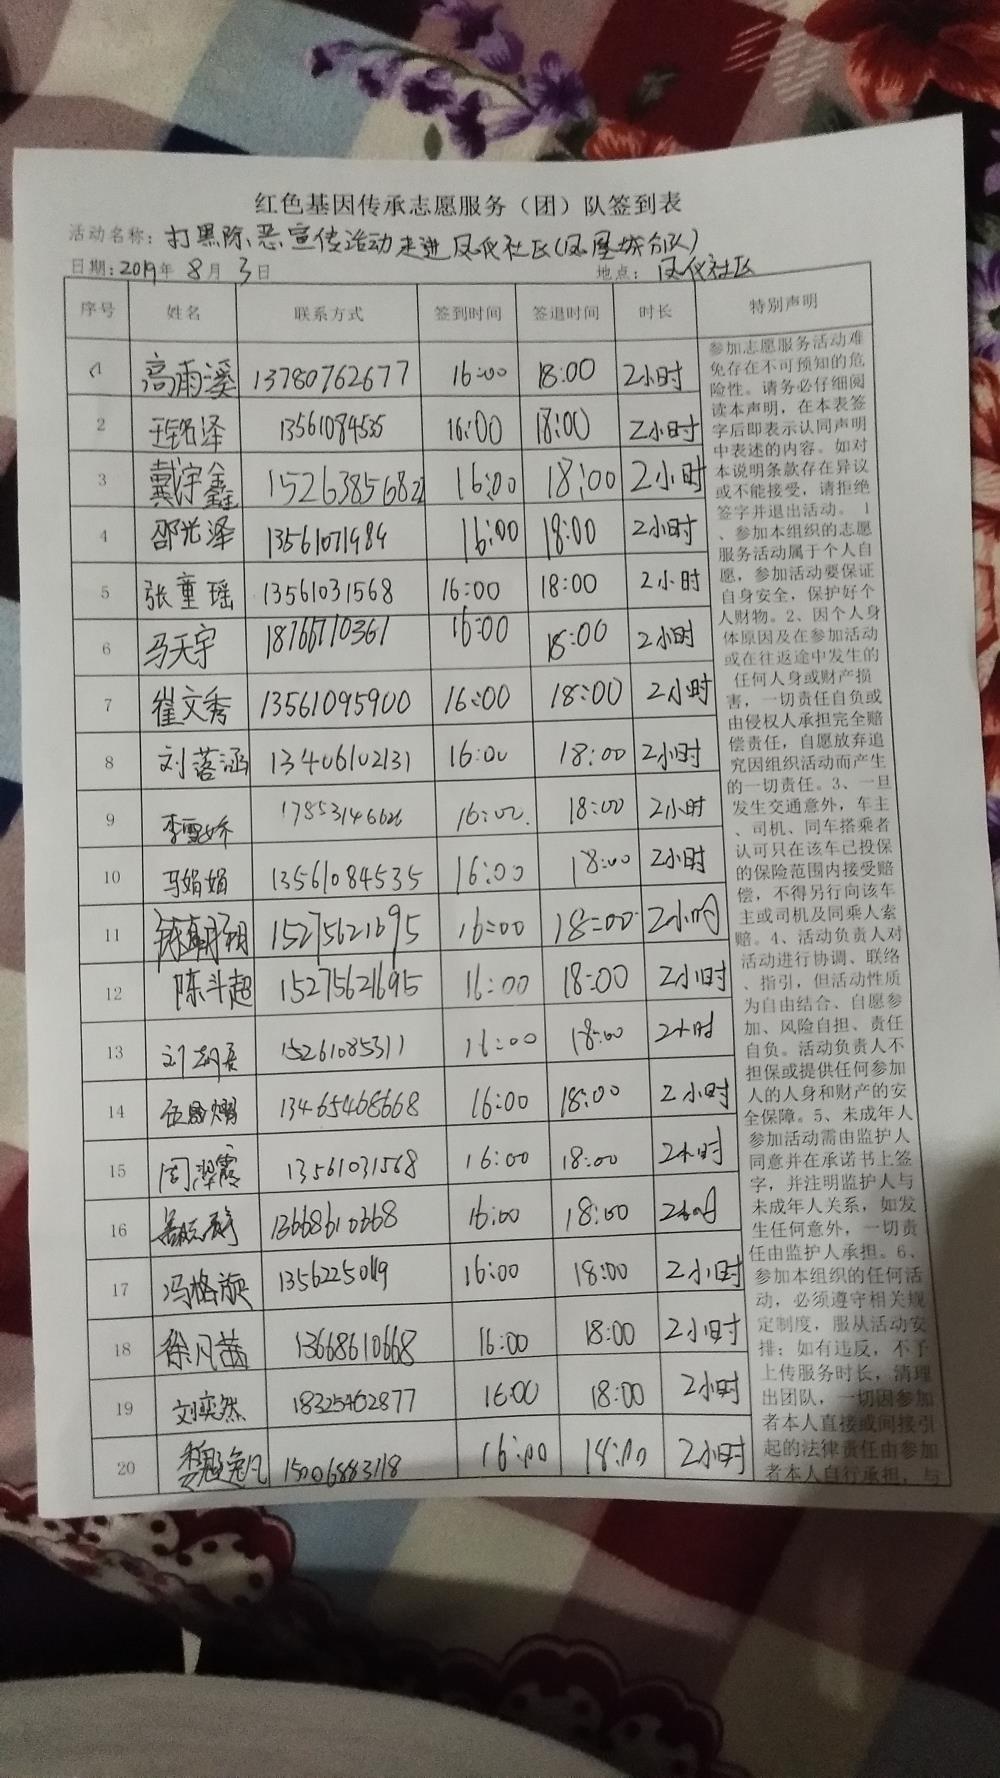 红色基因传承志愿服务（团）队签到表
活动名称：打黑除恶宣传活动走进凤仪社区（凤凰城分队）
日期：2019年8月3日 地点：凤仪社区
序号 姓名 联系方式 签到时间 签退时间 时长 特别声明
1 高雨溪 13780762677 16:00 18:00 2小时
2 泽 13561084535 16:00 18:00 2小时
3 戴宇鑫 15263856822 16:00 18:00 2小时
4 邵光泽 13561071984 16:00 18:00 2小时
5 张童瑶 13561031568 16:00 18:00 2小时
6 马天宇 18766710361 16:00 18:00 2小时
7 崔文秀 13561095900 16:00 18:00 2小时
8 刘落涵 13406102131 16:00 18:00 2小时
9 李雪娇 17853146626 16:00. 18:00 2小时
10 马娟娟 13561084535 16:00 18:00 2小时
11 15275621695 16:00 18:00 2小时
12 陈斗超 15275621695 16:00 18:00 2小时
13 刘 15261085311 16:00 18:00 2小时
14 13465468668 16:00 18:00 2小时
15 周洁霞 13561031568 16:00 18:00 2小时
16 13668610368 16:00 18:00 2小时
17 冯格旋 1356225019 16:00 18:00 2小时
18 徐凡茜 13668610668 16:00 18:00 2小时
19 刘奕然 18325462877 16:00 18:00 2小时
20 15006883118 16:00 18:00 2小时
参加志愿服务活动难
免存在不可预知的危
险性。请务必仔细阅
读本声明，在本表签
字后即表示认同声明
中表述的内容。如对
本说明条款存在异议
或不能接受，请拒绝
签字并退出活动。 1
、参加本组织的志愿
服务活动属于个人自
愿，参加活动要保证
自身安全，保护好个
人财物。2、因个人身
体原因及在参加活动
或在往返途中发生的
任何人身或财产损
害，一切责任自负或
由侵权人承担完全赔
偿责任，自愿放弃追
究因组织活动而产生
的一切责任。3、一旦
发生交通意外，车主
、司机、同车搭乘者
认可只在该车已投保
的保险范围内接受赔
偿，不得另行向该车
主或司机及同乘人索
赔。4、活动负责人对
活动进行协调、联络
、指引，但活动性质
为自由结合、自愿参
加、风险自担、责任
自负。活动负责人不
担保或提供任何参加
人的人身和财产的安
全保障。5、未成年人
参加活动需由监护人
同意并在承诺书上签
字，并注明监护人与
未成年人关系，如发
生任何意外，一切责
任由监护人承担。6、
参加本组织的任何活
动，必须遵守相关规
定制度，服从活动安
排；如有违反，不予
上传服务时长，清理
出团队，一切因参加
者本人直接或间接引
起的法律责任由参加
者本人自行承担，与